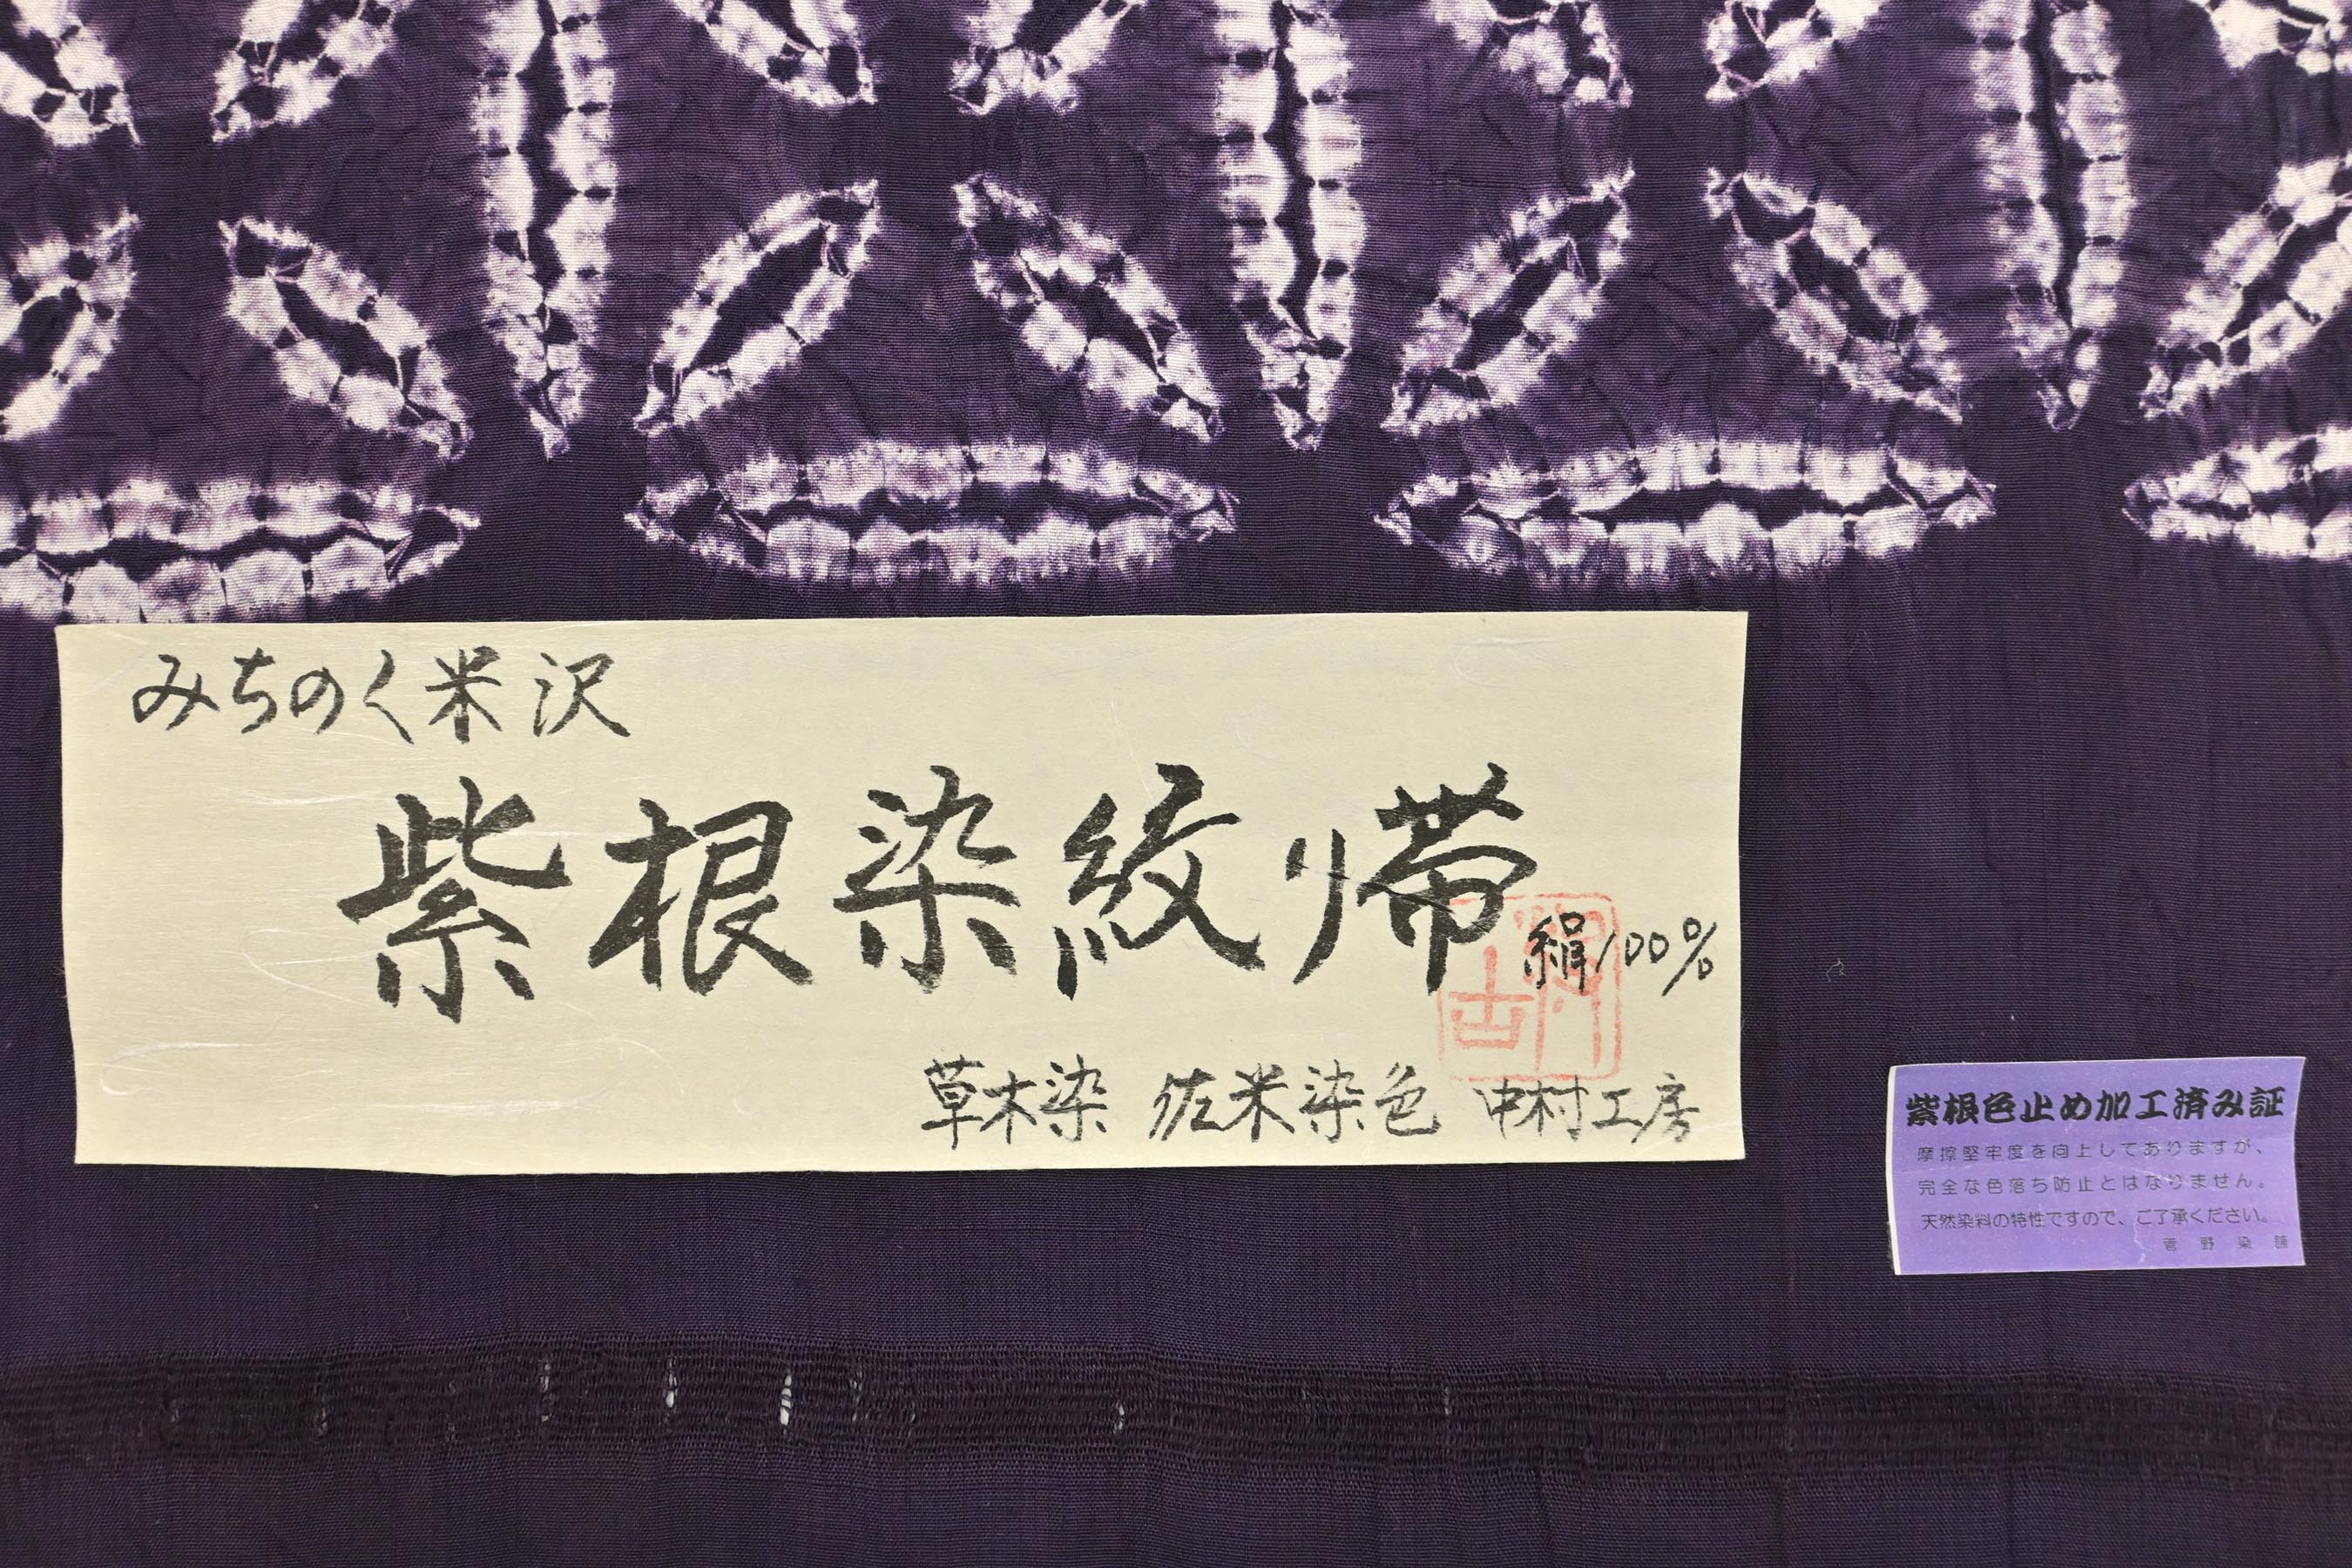 みちのく米沢
紫根染絞り帯
絹100%
草木染 佐米染色 中村工房
紫根色止め加工済み証
摩擦堅牢度を向上してありますが、
完全な色落ち防止とはなりません。
天然染料の特性ですので、ご了承ください。
菅野染舗